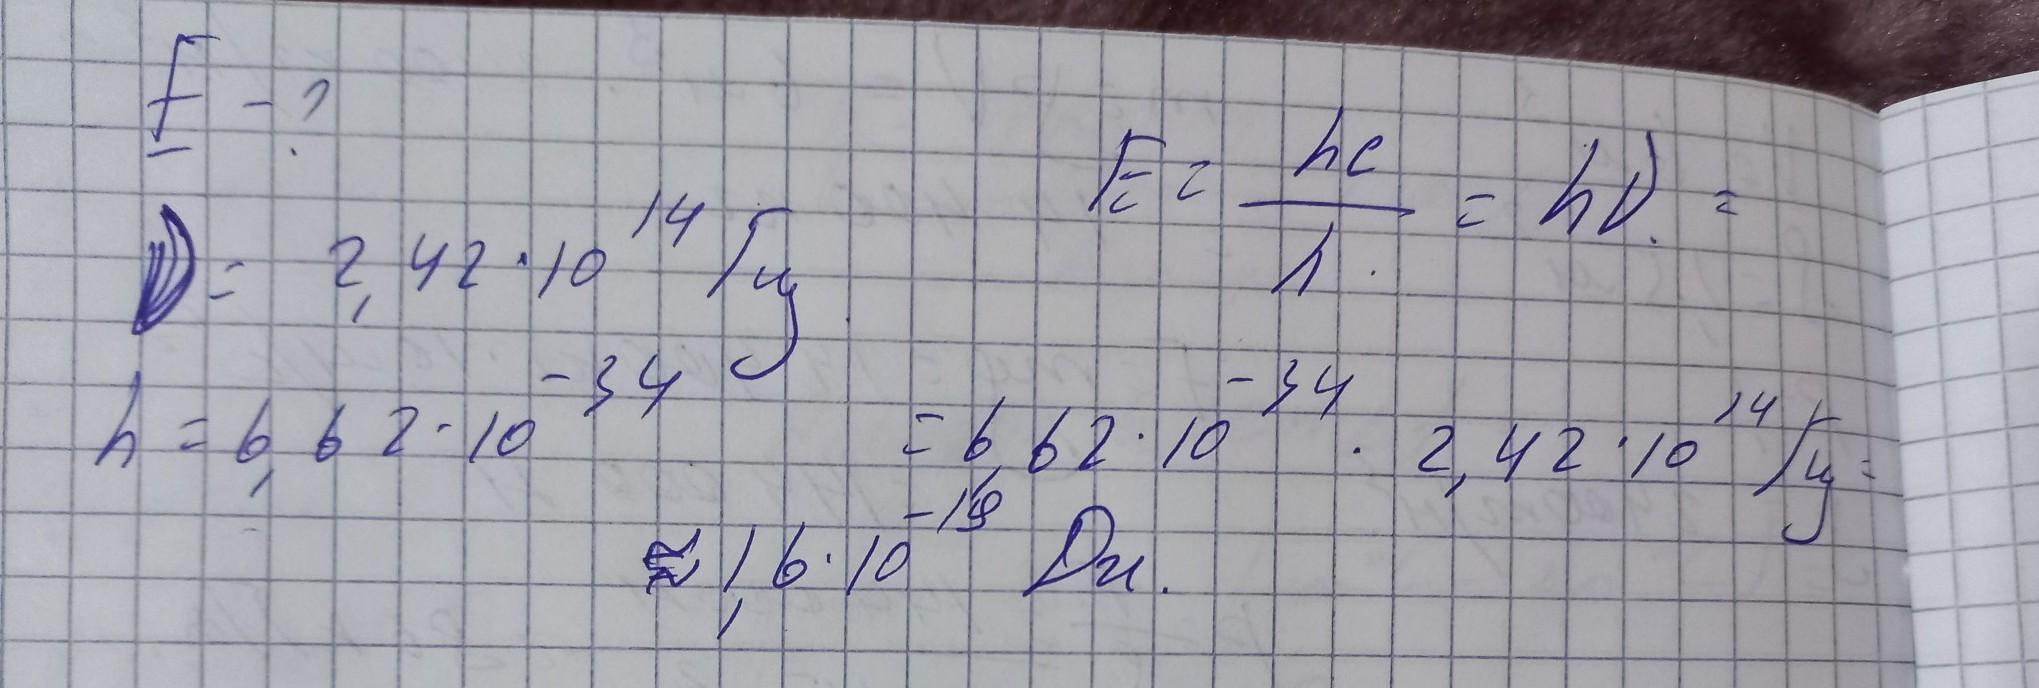 E - ?
ν = 2,42·10^14 Гц
h = 6,62·10^-34
E = hc/λ = hν =
= 6,62·10^-34 · 2,42·10^14 Гц =
≈ 1,6·10^-19 Дж.